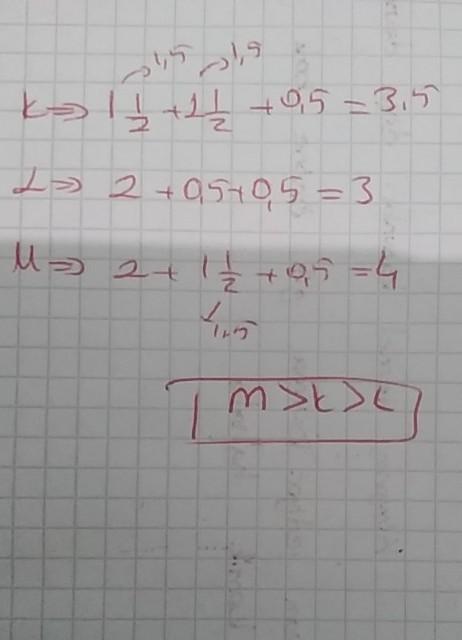 1,5 1,5
K⇒ 1 1/2 + 1 1/2 + 0,5 = 3,5
L⇒ 2 + 0,5 + 0,5 = 3
M⇒ 2 + 1 1/2 + 0,5 = 4
1,5
M > K > L